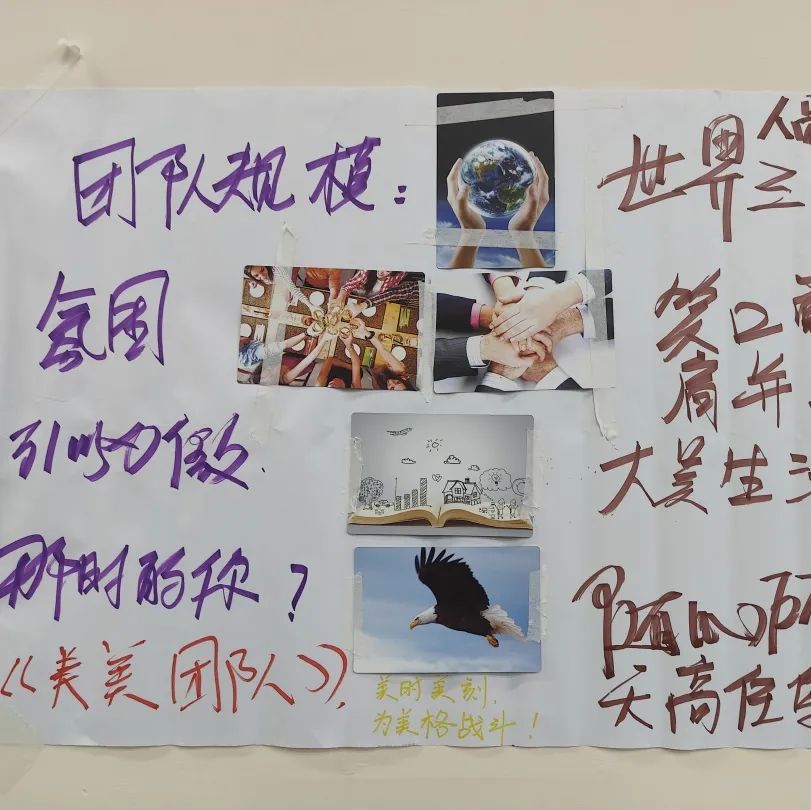 团队规模：
氛围
引以为傲.
那时的你？
《美美团队》，
美时美刻，
为美格战斗！
世界
三
笑口
肩并
大美生活
随心所
天高任